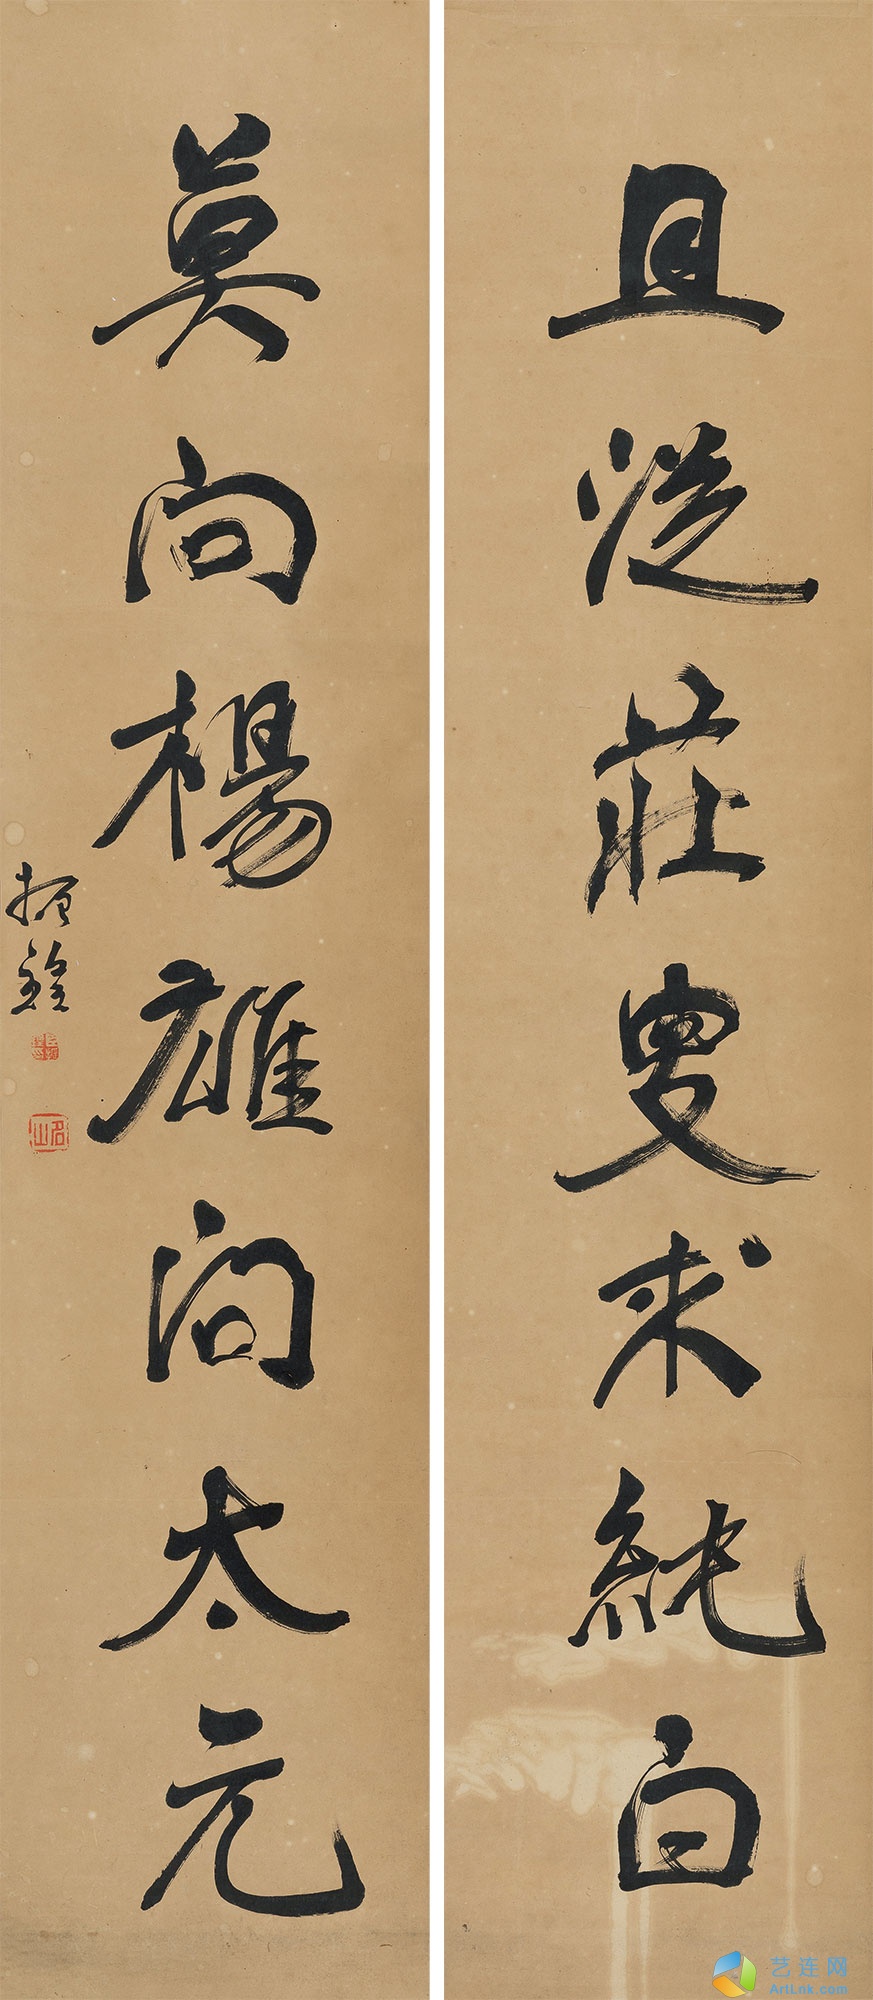 且從莊叟求純白
莫向楊雄問太元
振鍠
名山
艺连网
ArtLnk.com